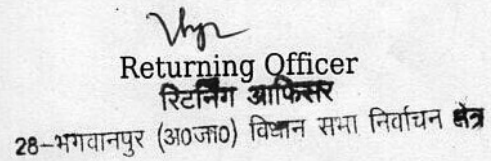 Returning Officer
रिटर्निंग आफिसर
28-भगवानपुर (अ०जा०) विधान सभा निर्वाचन क्षेत्र